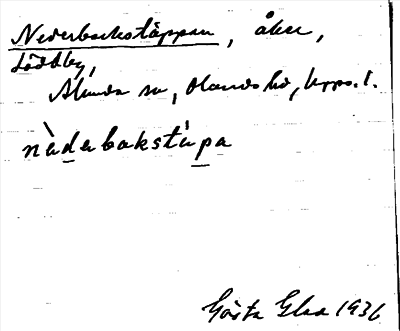 Nederbackstäppan, åker,
Lödby,
Alunda sn, Olands hd, Upps. l.
nèderbakstápa
Gösta Glas 1936